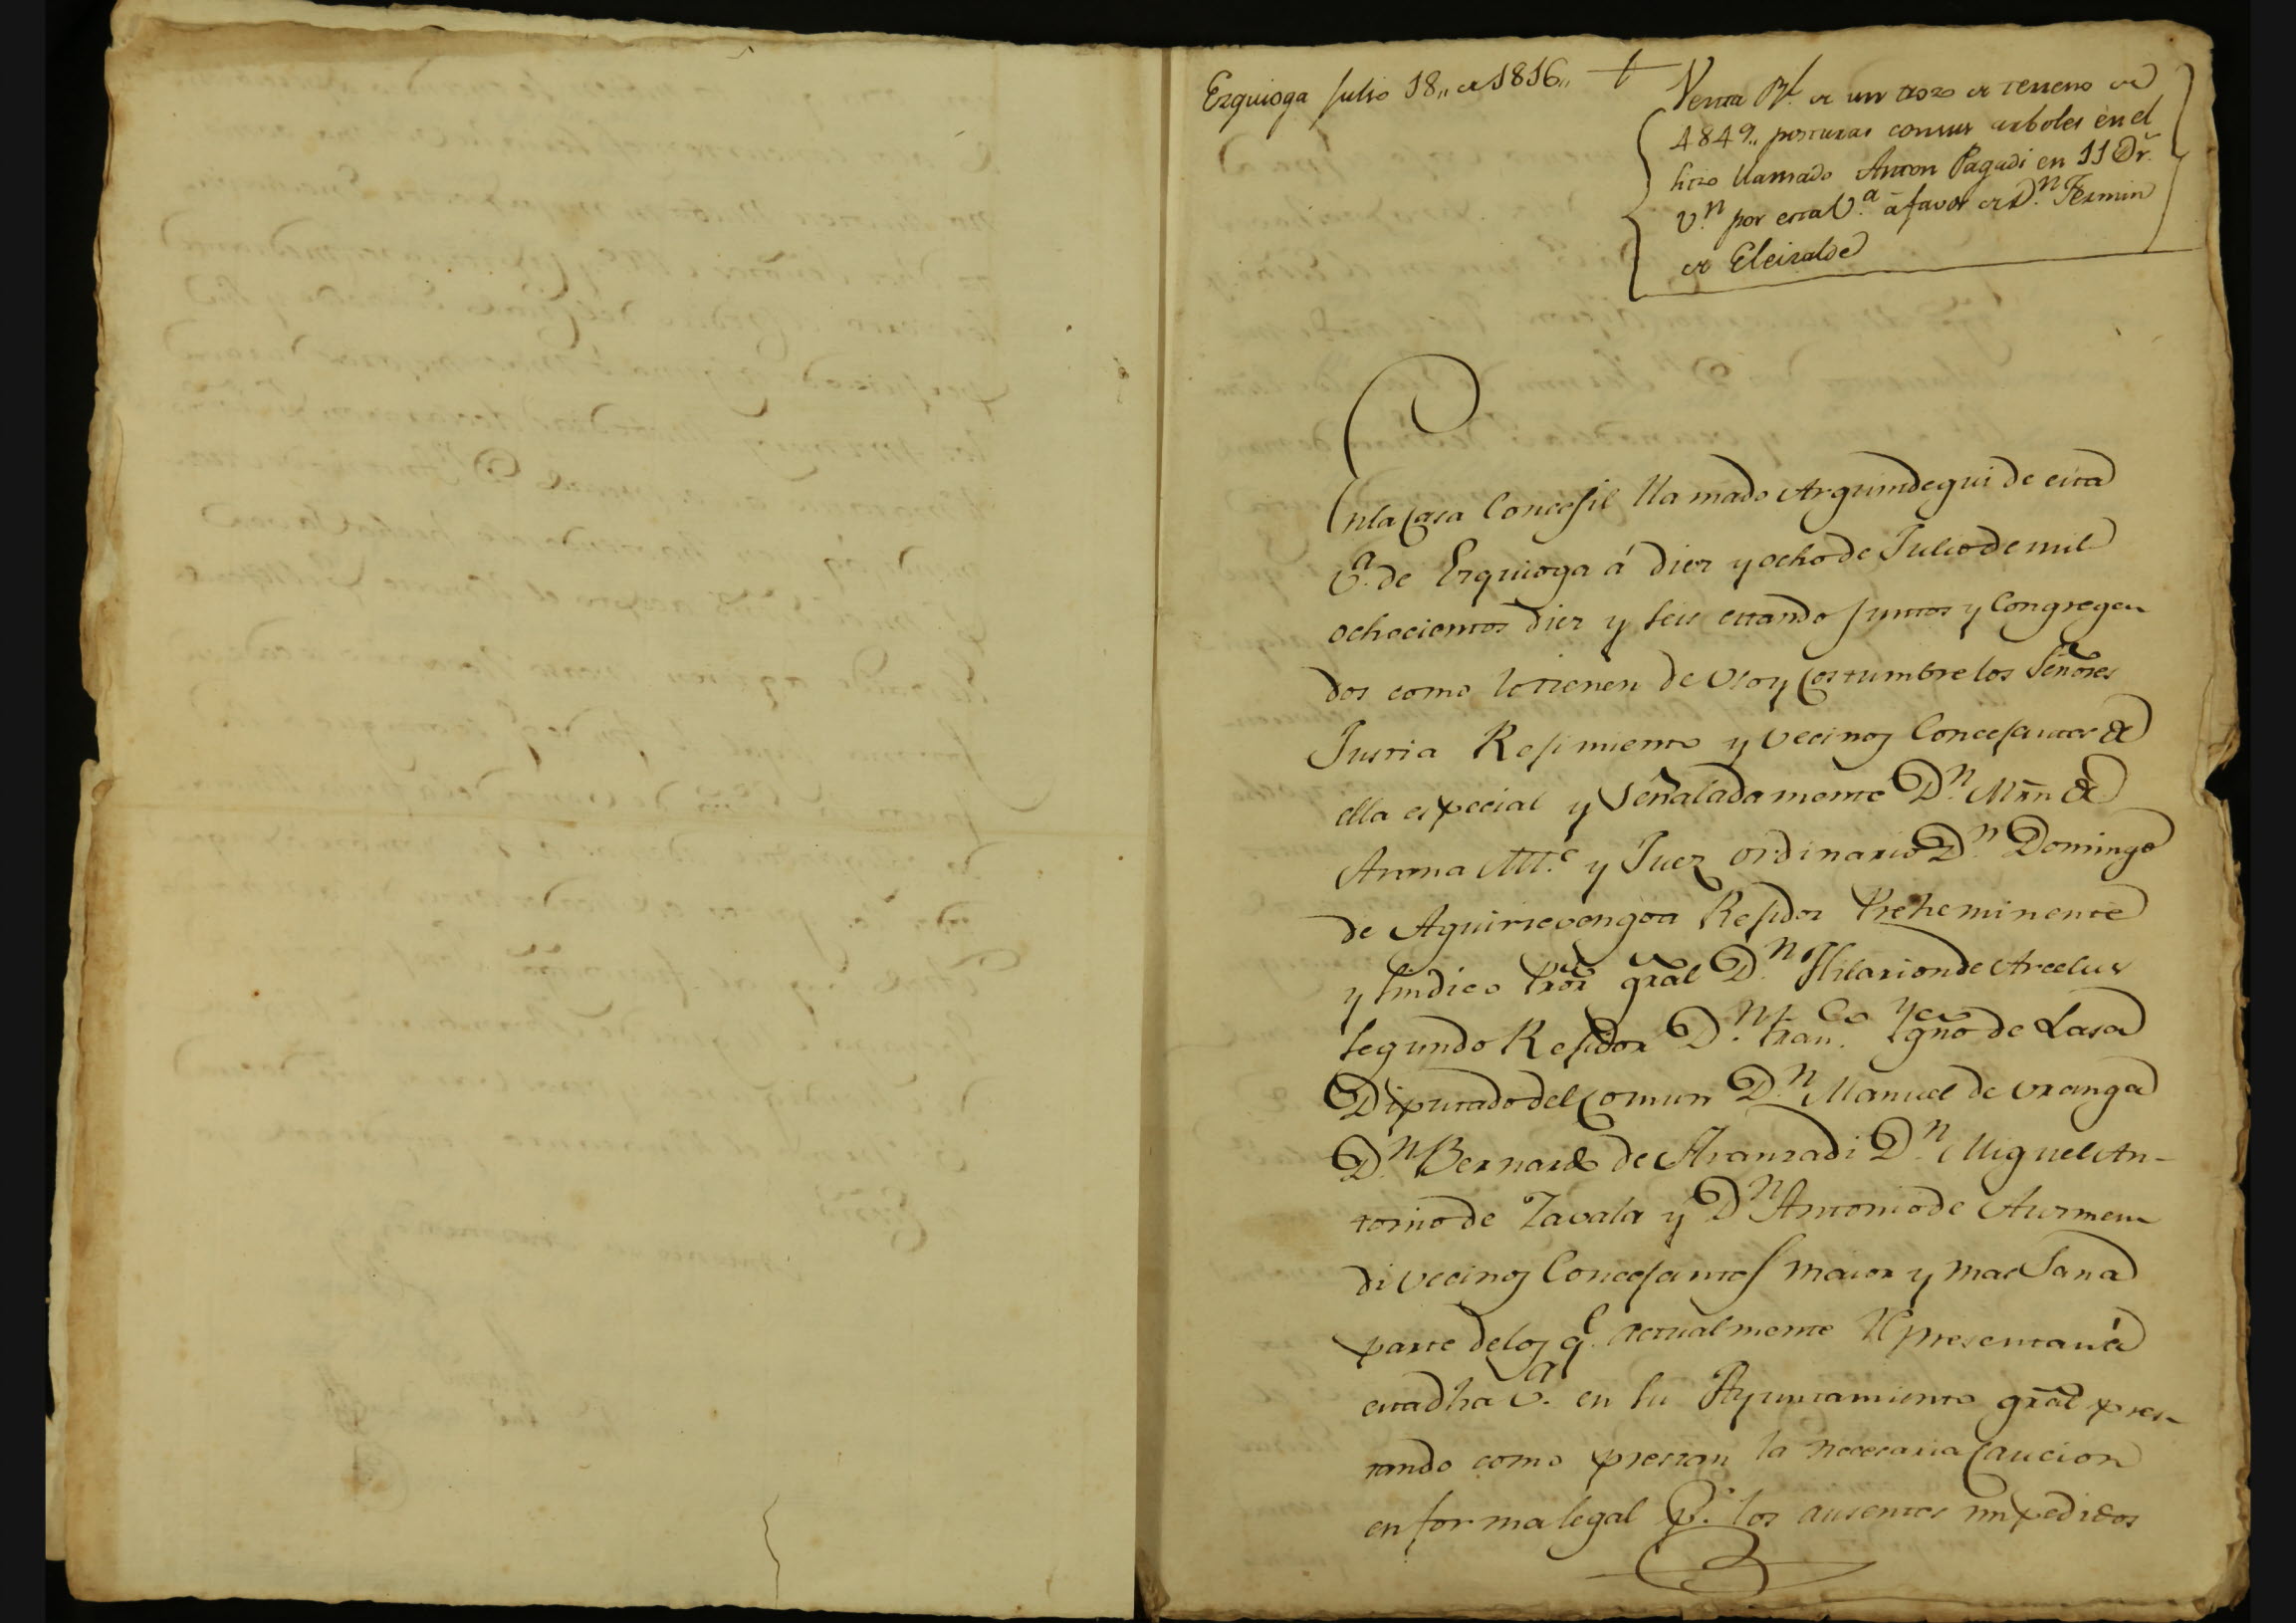 Ezquioga Julio 18,, de 1816,, †
Venta Rl. de un trozo de terreno de
4849,, posturas con sus arboles en el
sitio llamado Anton Pagadi en 11 Dr.
Vn. por esta Va. á favor de Dn. Fermin
de Eleizalde
En la Casa Concejil llamado Arguindegui de esta
Va. de Ezquioga á diez y ocho de Julio de mil
ochocientos diez y seis estando Juntos y Congrega
dos como lo tienen de Uso y Costumbre los Señores
Justicia Rejimiento y Vecinos Concejantes de
ella especial y Señaladamente Dn. Mrn de
Anna Alte. y Juez ordinario Dn. Domingo
de Aguirrevengoa Rejidor Preheminente
y Sindico Pror gral Dn. Hilarion de Arcelus
Segundo Rejidor Dn. Franco. Ygno de Lasa
Diputado del Comun Dn. Manuel de Uranga
Dn. Bernardo de Aranzadi Dn. Miguel An-
tonio de Zavala y Dn. Antonio de Aurmen
di Vecinos Concejantes maior y mas Sana
parte de los q.e actualmente Representan á
esta dha Va. en su Ayuntamiento gral pres
tando como prestan la necesaria Caucion
en forma legal Pr. los ausentes impedidos